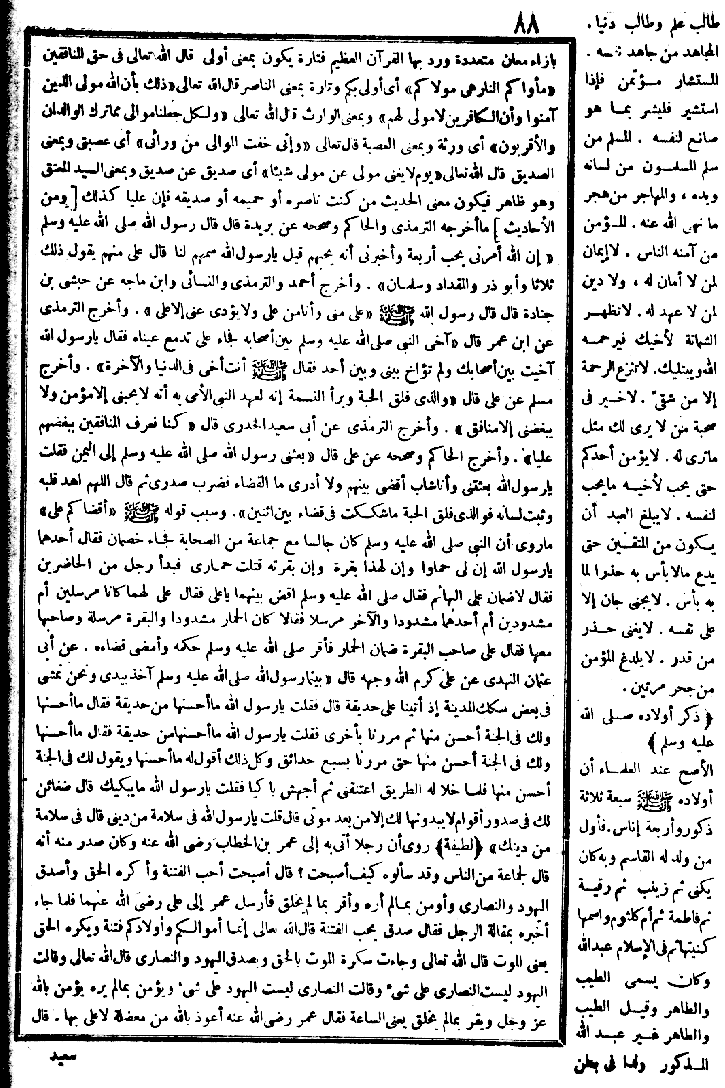 ٨٨
بازاء معان متعددة ورد بها القرآن العظيم فتارة يكون بمعنى أولى قال الله تعالى فى حق المنافقين
«مأواكم النار هى مولاكم» أى أولى بكم وتارة بمعنى الناصر قال الله تعالى «ذلك بأن الله مولى الذين
آمنوا وأن الكافرين لا مولى لهم» وبمعنى الوارث قال الله تعالى «ولكل جعلنا موالى مما ترك الوالدان
والأقربون» أى ورثة وبمعنى العصبة قال تعالى «وإنى خفت الموالى من ورائى» أى عصبتى وبمعنى
الصديق قال الله تعالى «يوم لا يغنى مولى عن مولى شيئا» أى صديق عن صديق وبمعنى السيد المعتق
وهو ظاهر فيكون معنى الحديث من كنت ناصره أو حميمه أو صديقه فإن عليا كذلك [ ومن
الأحاديث ] ما أخرجه الترمذى والحاكم وصححه عن بريدة قال قال رسول الله صلى الله عليه وسلم
« إن الله أمرنى بحب أربعة وأخبرنى أنه يحبهم قيل يا رسول الله سمهم لنا قال على منهم يقول ذلك
ثلاثا وأبو ذر والمقداد وسلمان» . وأخرج أحمد والترمذى والنسائى وابن ماجه عن حبشى بن
جنادة قال قال رسول الله ﷺ «على منى وأنا من على ولا يؤدى عنى إلا على» . وأخرج الترمذى
عن ابن عمر قال «آخى النبى صلى الله عليه وسلم بين أصحابه فجاء على تدمع عيناه فقال يا رسول الله
آخيت بين أصحابك ولم تؤاخ بينى وبين أحد فقال ﷺ أنت أخى فى الدنيا والآخرة» . وأخرج
مسلم عن على قال «والذى فلق الحبة وبرأ النسمة إنه لعهد النبى الأمى به أنه لا يحبنى إلا مؤمن ولا
يبغضنى إلا منافق» . وأخرج الترمذى عن أبى سعيد الخدرى قال « كنا نعرف المنافقين ببغضهم
عليا» . وأخرج الحاكم وصححه عن على قال «بعثنى رسول الله صلى الله عليه وسلم إلى اليمن فقلت
يا رسول الله بعثتنى وأنا شاب أقضى بينهم ولا أدرى ما القضاء فضرب صدرى ثم قال اللهم اهد قلبه
وثبت لسانه فوالذى فلق الحبة ما شككت فى قضاء بين اثنين» . وسبب قوله ﷺ «أقضاكم على»
ما روى أن النبى صلى الله عليه وسلم كان جالسا مع جماعة من الصحابة فجاء خصمان فقال أحدهما
يا رسول الله إن لى حمارا وإن لهذا بقرة وإن بقرته قتلت حمارى فبدأ رجل من الحاضرين
فقال لا ضمان على البهائم فقال صلى الله عليه وسلم اقض بينهما يا على فقال على لهما كانا مرسلين أم
مشدودين أم أحدهما مشدودا والآخر مرسلا فقالا كان الحمار مشدودا والبقرة مرسلة وصاحبها
معها فقال على صاحب البقرة ضمان الحمار فأقر صلى الله عليه وسلم حكمه وأمضى قضاءه . عن أبى
عثمان النهدى عن على كرم الله وجهه قال «بينما رسول الله صلى الله عليه وسلم آخذ بيدى ونحن نمشى
فى بعض سكك المدينة إذ أتينا على حديقة قال فقلت يا رسول الله ما أحسنها من حديقة فقال ما أحسنها
ولك فى الجنة أحسن منها ثم مررنا بأخرى فقلت يا رسول الله ما أحسنها من حديقة فقال ما أحسنها
ولك فى الجنة أحسن منها حتى مررنا بسبع حدائق وكل ذلك أقول له ما أحسنها ويقول لك فى الجنة
أحسن منها فلما خلا له الطريق اعتنقنى ثم أجهش باكيا فقلت يا رسول الله ما يبكيك قال ضغائن
لك فى صدور أقوام لا يبدونها لك إلا من بعد موتى قال قلت يا رسول الله فى سلامة من دينى قال فى سلامة
من دينك» ﴿لطيفة﴾ روى أن رجلا أتى به إلى عمر بن الخطاب رضى الله عنه وكان صدر منه أنه
قال لجماعة من الناس وقد سألوه كيف أصبحت ؟ قال أصبحت أحب الفتنة وأكره الحق وأصدق
اليهود والنصارى وأومن بما لم أره وأقر بما لم يخلق فأرسل عمر إلى على رضى الله عنهما فلما جاء
أخبره بمقالة الرجل فقال صدق يحب الفتنة قال الله تعالى إنما أموالكم وأولادكم فتنة ويكره الحق
يعنى الموت قال الله تعالى وجاءت سكرة الموت بالحق ويصدق اليهود والنصارى قال الله تعالى وقالت
اليهود ليست النصارى على شىء وقالت النصارى ليست اليهود على شىء ويؤمن بما لم يره يؤمن بالله
عز وجل ويقر بما لم يخلق يعنى الساعة فقال عمر رضى الله عنه أعوذ بالله من معضلة لا على بها . قال
سعيد
طالب علم وطالب دنيا .
المجاهد من جاهد نفسه .
المستشار مؤتمن فإذا
استشير فليشر بما هو
صانع لنفسه . المسلم من
سلم المسلمون من لسانه
ويده ، والمهاجر من هجر
ما نهى الله عنه . المؤمن
من آمنه الناس . لا إيمان
لمن لا أمان له ، ولا دين
لمن لا عهد له . لا تظهر
الشماتة لأخيك فيرحمه
الله ويبتليك. لا تنزع الرحمة
إلا من شقى . لا خير فى
صحبة من لا يرى لك مثل
ما ترى له . لا يؤمن أحدكم
حتى يحب لأخيه ما يحب
لنفسه . لا يبلغ العبد أن
يكون من المتقين حتى
يدع ما لا بأس به حذرا لما
به بأس . لا يجنى جان إلا
على نفسه . لا يغنى حذر
من قدر . لا يلدغ المؤمن
من جحر مرتين .
﴿ ذكر أولاده صلى الله
عليه وسلم ﴾
الأصح عند العلماء أن
أولاده ﷺ سبعة ثلاثة
ذكور وأربعة إناس. فأول
من ولد له القاسم وبه كان
يكنى ثم زينب ثم رقية
ثم فاطمة ثم أم كلثوم واسمها
كنيتها ثم فى الإسلام عبد الله
وكان يسمى الطيب
والطاهر وقيل الطيب
والطاهر غير عبد الله
المذكور ولدا فى بطن